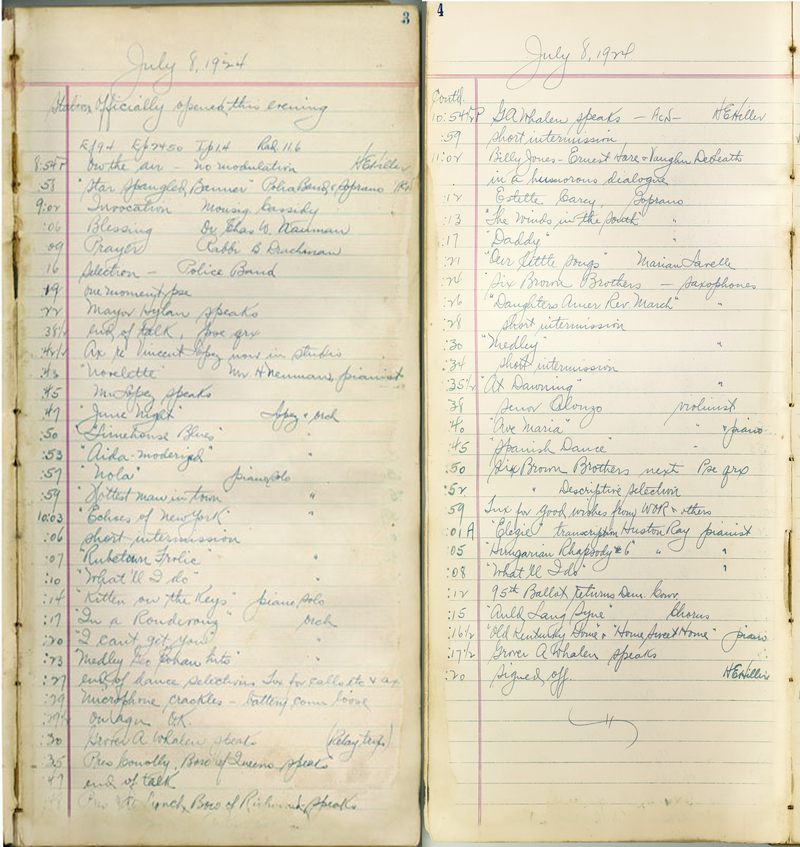 3
July 8, 1924
Station officially opened this evening
Ef 94 Ep 2450 Ip 1.4 Rad 11.6
8:54 P on the air - No modulation HEHiller
:58 "Star Spangled Banner" Police Band & Soprano
9:02 Invocation Monsig. Cassidy
:06 Blessing Dr. Chas W.
09 Prayer Rabbi B Drachman
16 selection - Police Band
:19 one moment pse
:22 Mayor Hylan speaks
38½ end of talk, grx
:42½ Ax re Vincent Lopez now in studio
:43 "Novelette" Mr. H Neuman, pianist
:45 Mr. Lopez speaks
:47 "June Night" Lopez & orch
:50 "Limehouse Blues" "
:53 "Aida - modernized" "
:57 "Nola" piano solo
:59 "Hottest man in town "
10:03 "Echoes of New York" "
:06 short intermission
:07 "Rubetown Frolic" "
:10 "What'll I do" "
:14 "Kitten on the Keys" piano solo
:17 "In a Rendezvous" orch
:20 "I can't get you" "
:23 Medley Geo Cohan hits" "
:27 end of dance selections Tnx for calls etc & ax
:29 Microphone crackles - battery come loose
:29½ on again OK.
:30 Grover A Whalen speaks (Relay trips)
:35 Pres Conolly, Boro of Queens speaks
:47 end of talk
Pres Lynch, Boro of Richmond speaks
4
July 8, 1924
Contd.
10:54½ P GA Whalen speaks - HEHiller
:59 short intermission
11:02 Billy Jones - Ernest Hare & Vaughn DeLeath
in a humorous dialogue
:12 Estelle Carey, Soprano
:13 "The Winds in the South" "
:17 "Daddy" "
:21 "Our Little Songs" Marian Lavelle
:24 "Six Brown Brothers - saxophones
:26 "Daughters Amer Rev March" "
:28 short intermission
:30 "Medley" "
:34 short intermission
:35½ "At Dawning" "
38 Senor Alonzo violinist
:40 "Ave Maria" " & piano
:45 "Spanish Dance" "
:50 Six Brown Brothers next Pse grx
:52 " Descriptive selection
59 Tnx for good wishes from WOR & others
:01 A "Elegie" transcription Huston Ray pianist
:05 "Hungarian Rhapsody #6" " "
:08 "What'll I do" "
:12 95th Ballot returns Dem. Conv.
:15 "Auld Lang Syne" Chorus
:16½ "Old Kentucky Home" & "Home Sweet Home" piano
:17½ Grover A Whalen speaks
:20 signed off. HEHiller